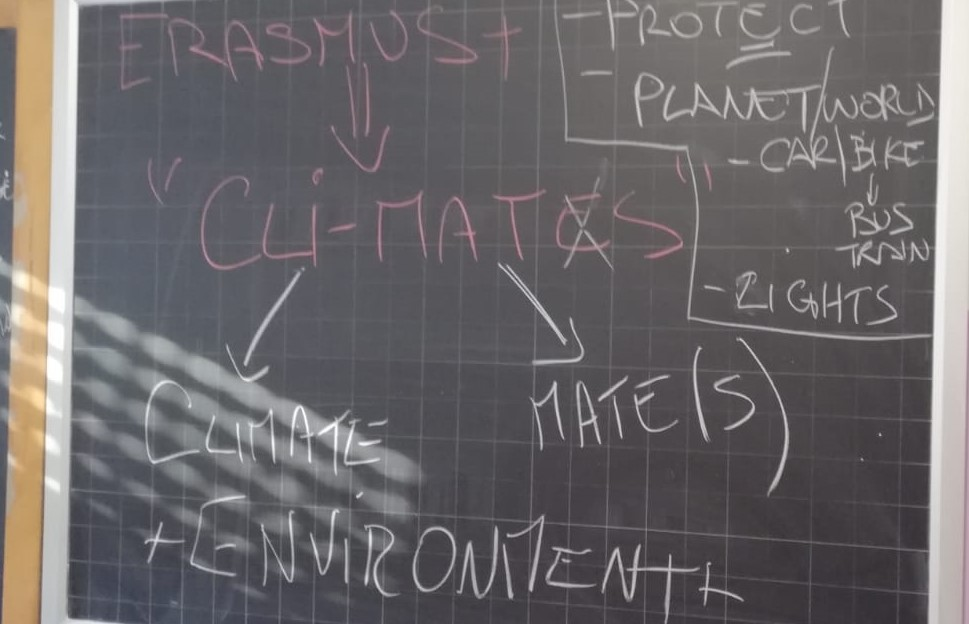 ERASMUS+
"CLi-MATES"
CLIMATE
MATE(S)
+ ENViRONMENT +
- PROTECT
-
PLANET/WORLD
- CAR/BIKE
BUS
TRAIN
- RIGHTS